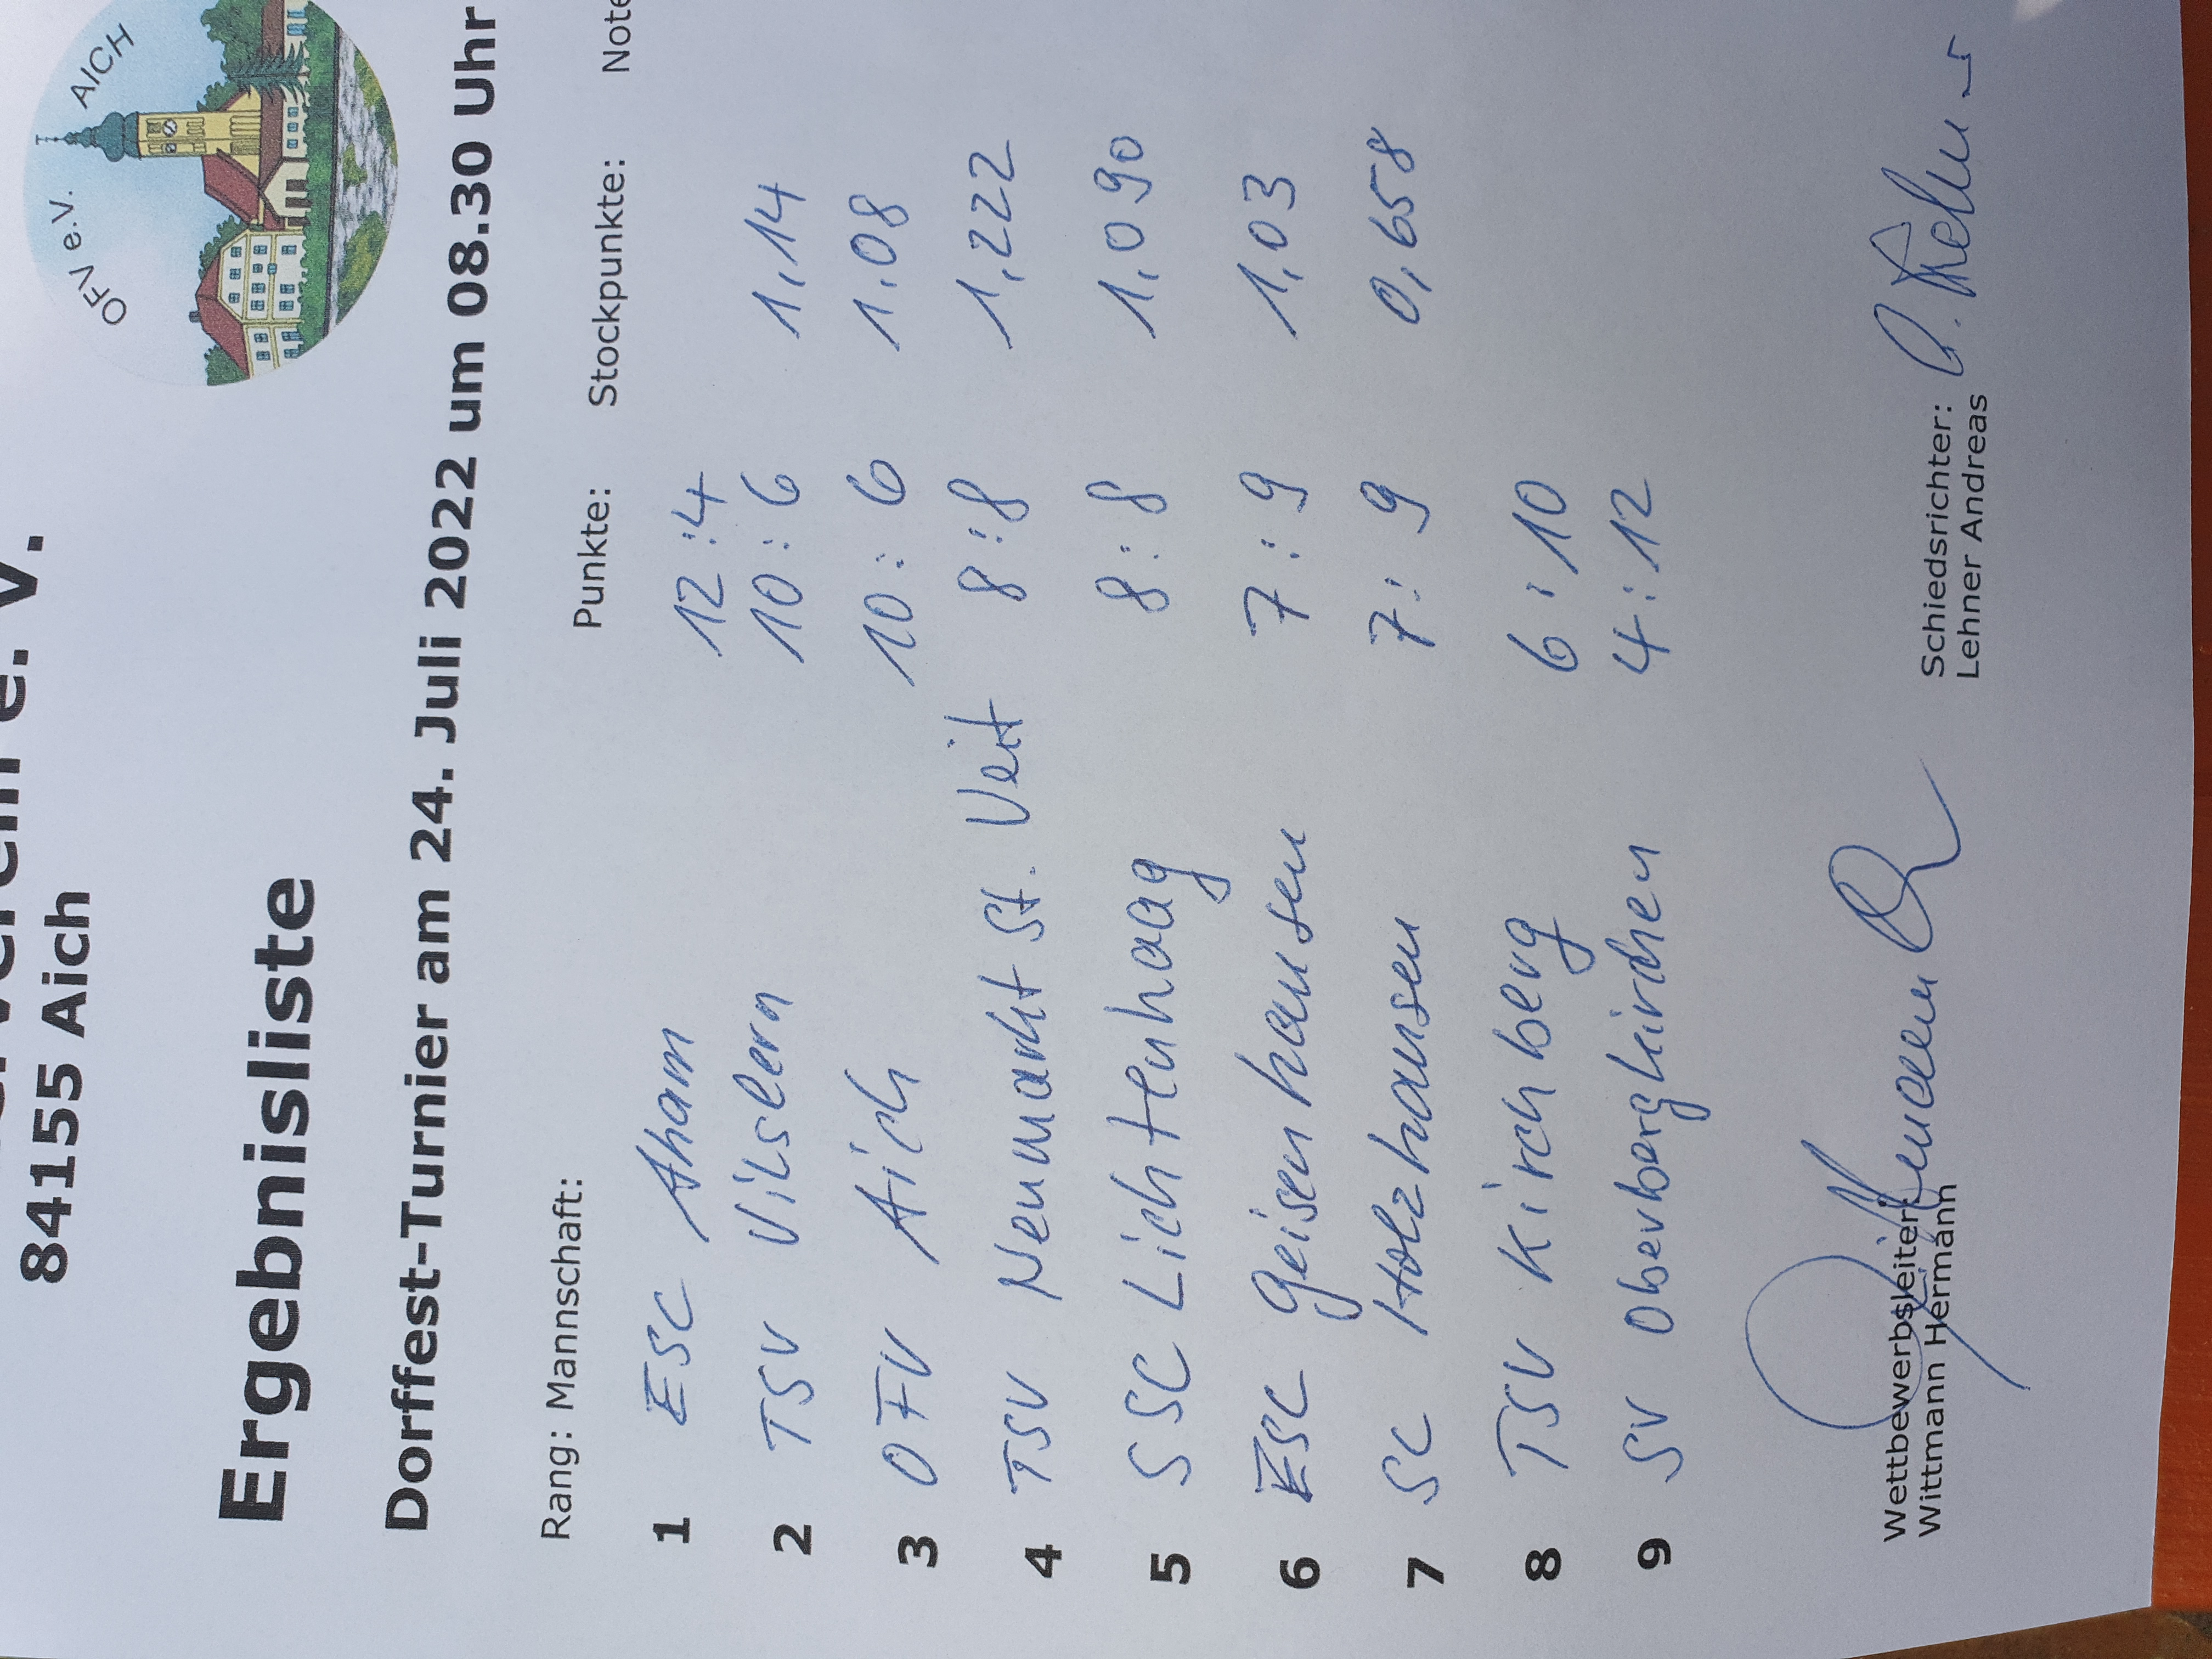 OFV e.V. AICH
84155 Aich
Ergebnisliste
Dorffest-Turnier am 24. Juli 2022 um 08.30 Uhr
Rang: Mannschaft: Punkte: Stockpunkte: Note
1 ESC Aham 12:4
2 TSV Vilslern 10:6 1,14
3 OFV Aich 10:6 1,08
4 TSV Neumarkt St. Veit 8:8 1,222
5 SSC Lichtenhaag 8:8 1,090
6 ESC Geisenhausen 7:9 1,03
7 SC Holzhausen 7:9 0,658
8 TSV Kirchberg 6:10
9 SV Oberbergkirchen 4:12
Wettbewerbsleiter: Schiedsrichter:
Wittmann Hermann Lehner Andreas